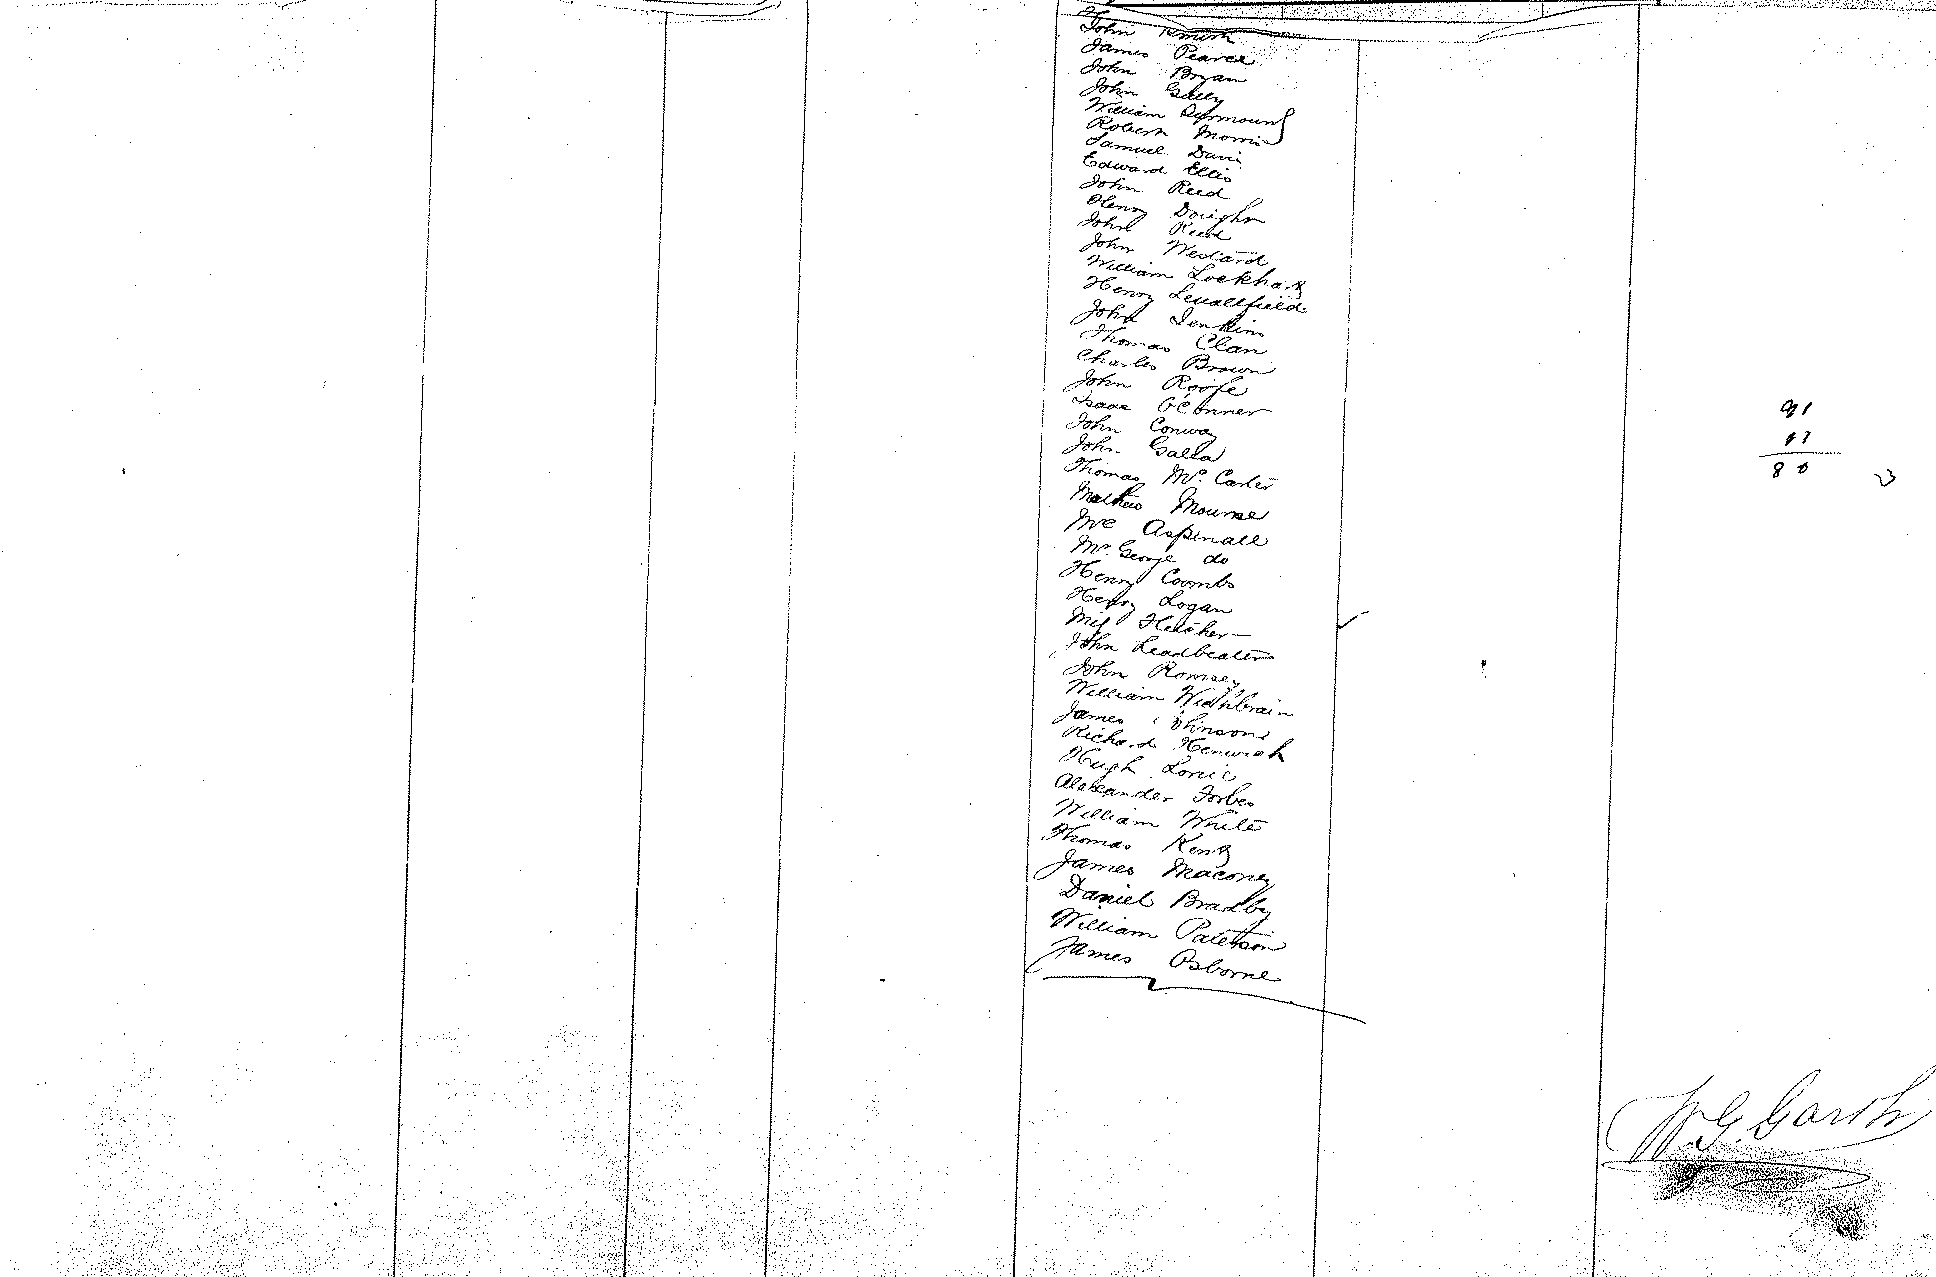 John Smith
James Pearce
John Bryan
John Gally
William Seymour
Robert Morris
Samuel Davis
Edward Ellis
John Reed
Henry
John Reed
John
William Lockhart
Henry
John Jenkins
Thomas Clan
Charles Brown
John Roofe
Isaac O'Conner
John Conway
John Galla
Thomas Mc. Carter
Mathew
Mr Aspinall
Mr. George do
Henry Coombs
Henry Logan
Fletcher
John Leadbeater
John Romsey
William
James Johnson
Richard
Hugh
Alexander Forbes
William White
Thomas Kent
James Maconey
Daniel Bradby
William Paterson
James Osborne
91
80
W. G. Garth